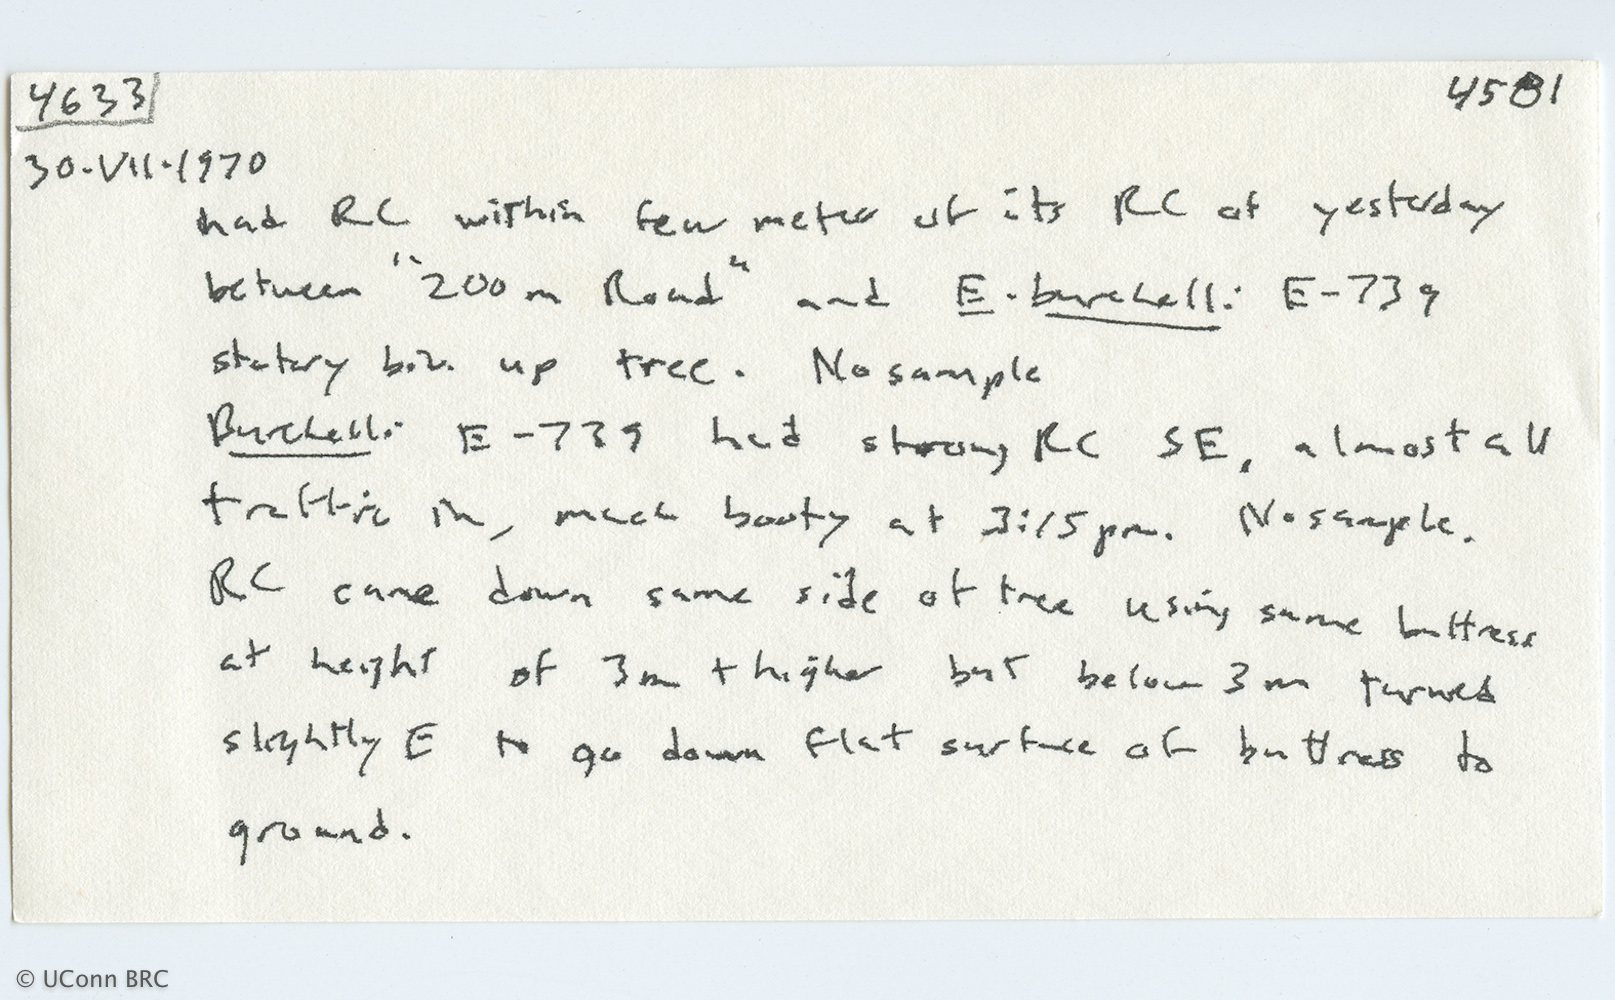 4633 4581
30.VII.1970
had RC within few meter of its RC of yesterday
between "200 m Road" and E. burchelli E-739
statary biv. up tree. No sample
Burchelli E-739 had strong RC SE, almost all
traffic in, much booty at 3:15 pm. No sample.
RC came down same side of tree using same buttress
at height of 3m + higher but below 3 m turned
slightly E to go down flat surface of buttress to
ground.
© UConn BRC